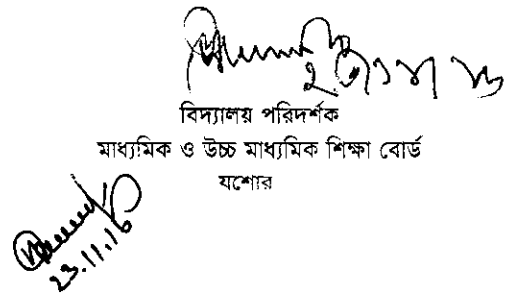 বিদ্যালয় পরিদর্শক
মাধ্যমিক ও উচ্চ মাধ্যমিক শিক্ষা বোর্ড
যশোর
23.11.16